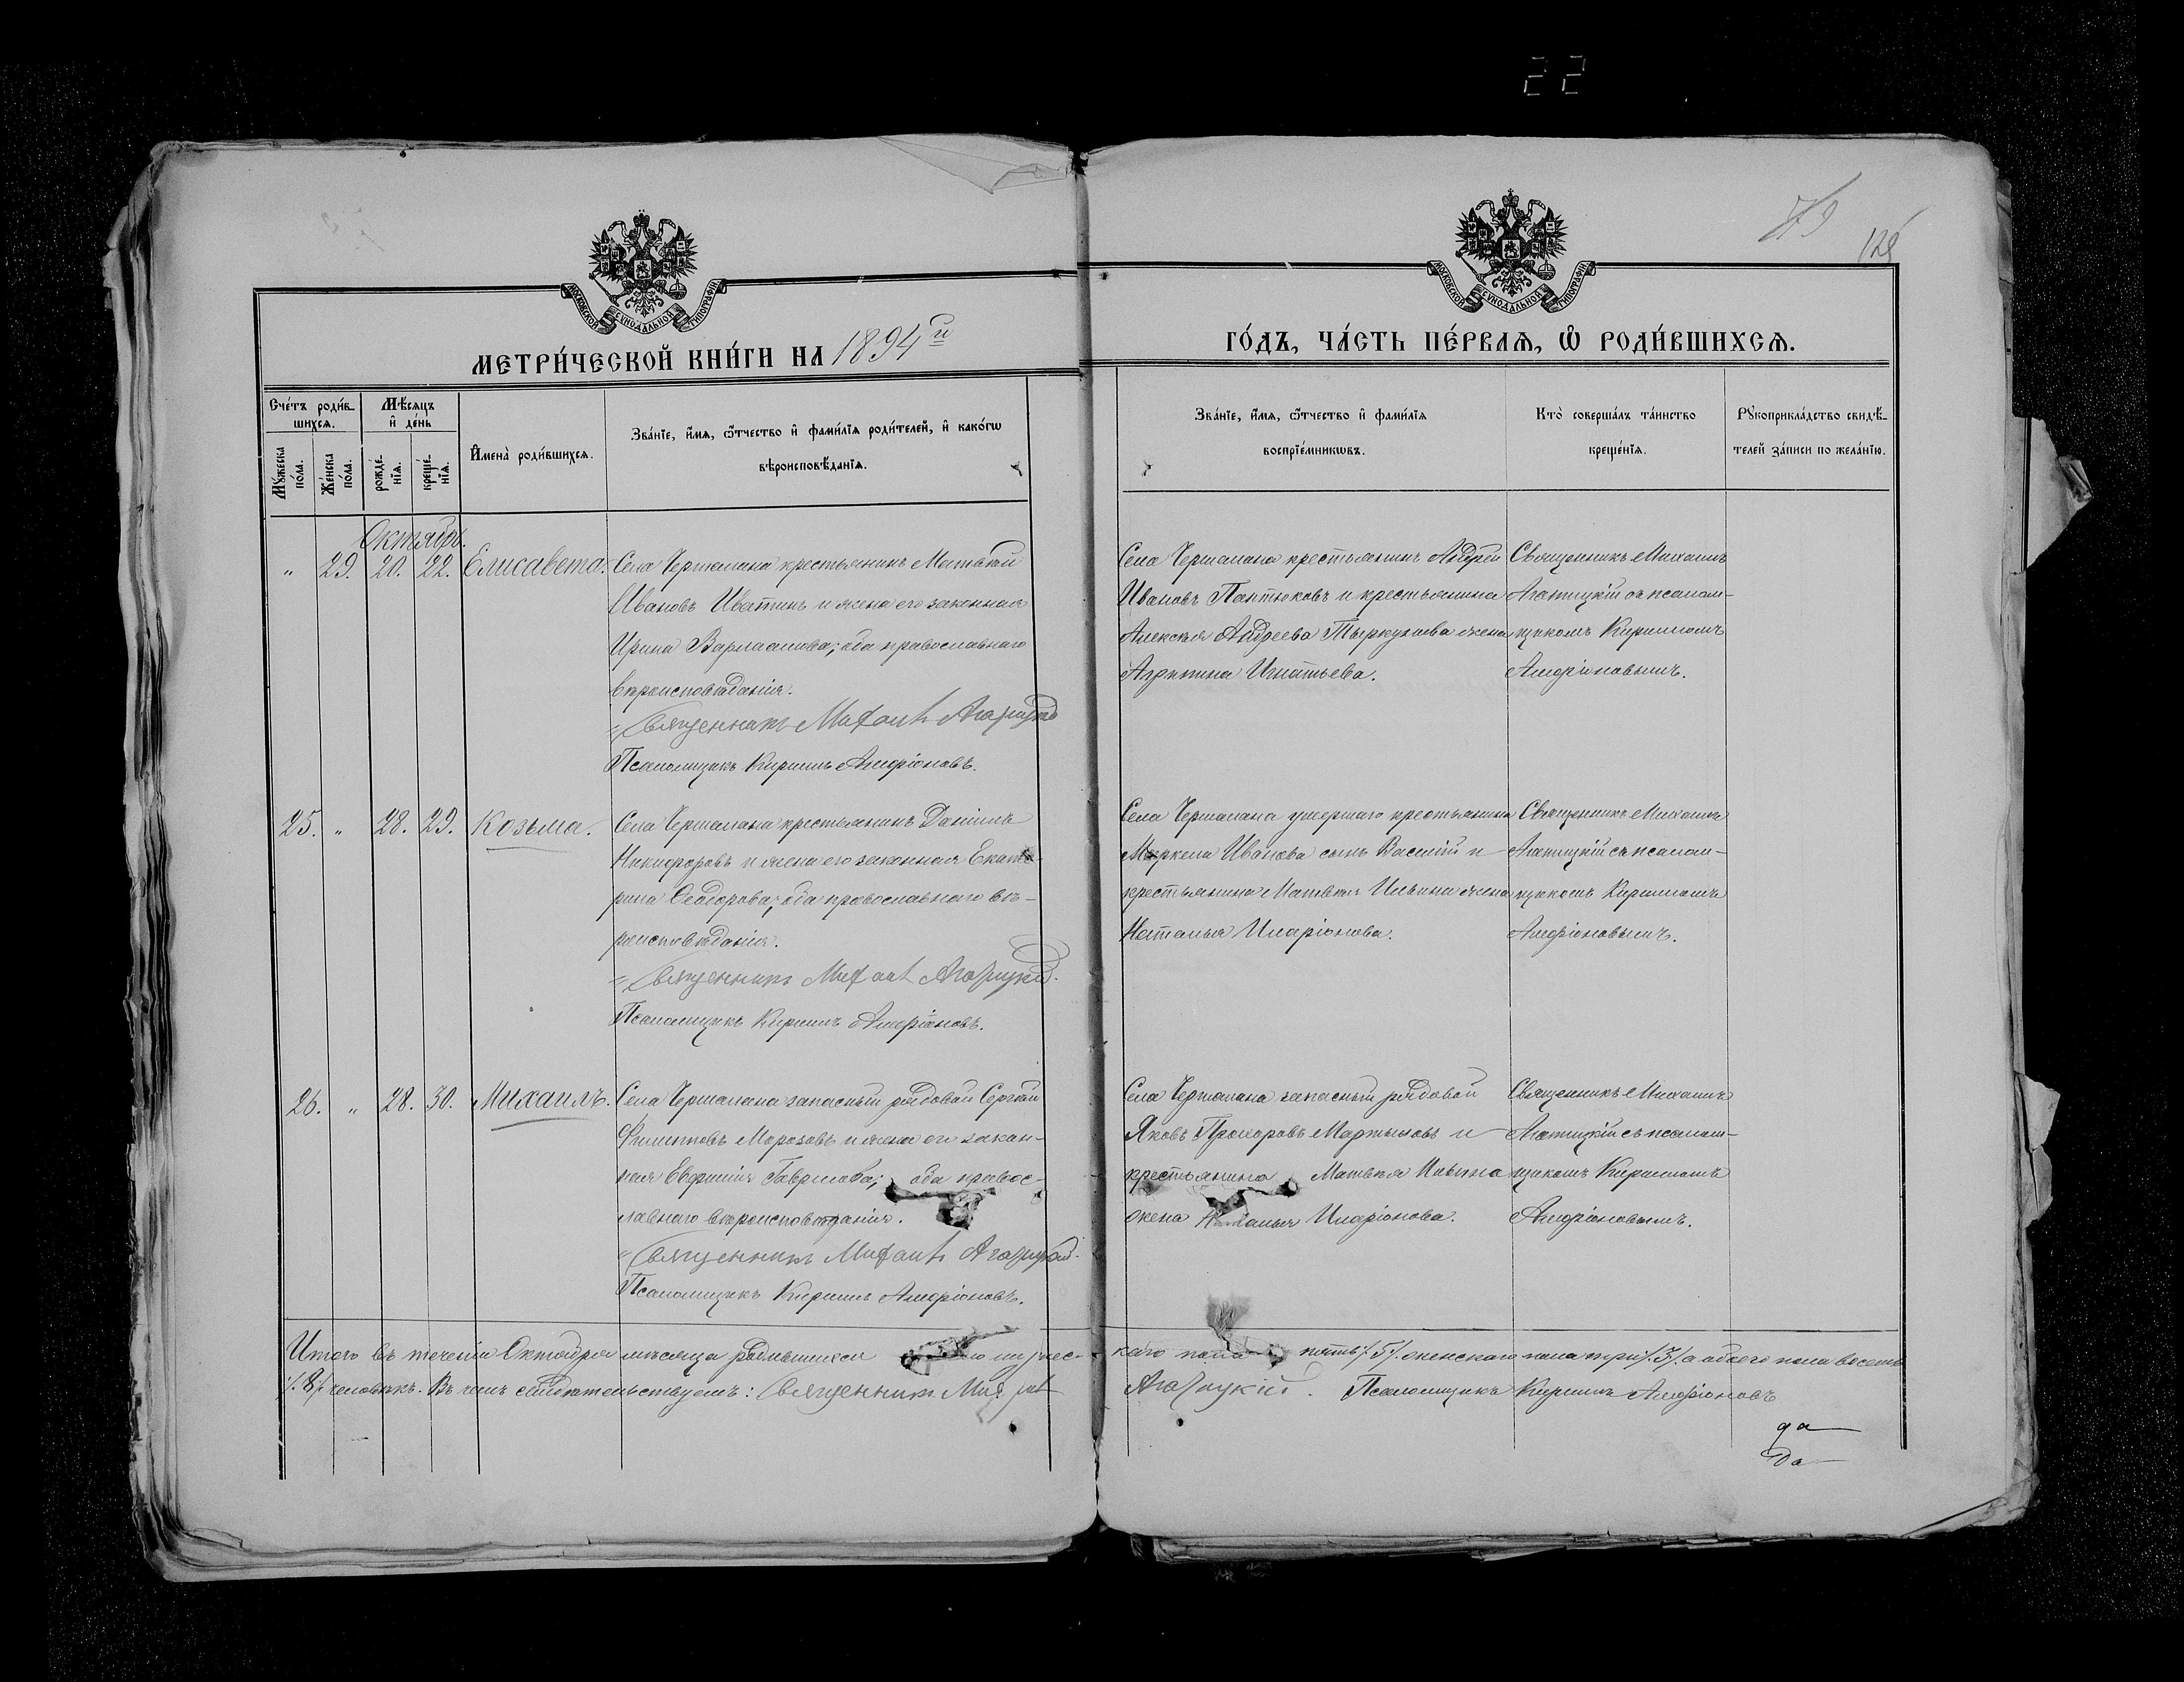 22
79
125
МОСКОВСКОЙ СѴНОДАЛЬНОЙ ТИПОГРАФІИ
МОСКОВСКОЙ СѴНОДАЛЬНОЙ ТИПОГРАФІИ
МЕТРИ́ЧЕСКОЙ КНИ́ГИ НА 1894й
ГО́ДЪ, ЧА́СТЬ ПЕ́РВАѦ, Ѡ҆ РОДИ́ВШИХСѦ.
Сче́тъ роди́в-
шихсѧ.
Мꙋ́жеска по́ла.
Же́нска по́ла.
Мѣ́сѧцъ
и҆ де́нь
рожде́-
нїѧ.
креще́-
нїѧ.
И҆мена̀ роди́вшихсѧ.
Зва́нїе, и҆́мѧ, ѻ҆́тчество и҆ фами́лїѧ роди́телей, и҆ како́гѡ
вѣроисповѣ́данїѧ.
Зва́нїе, и҆́мѧ, ѻ҆́тчество и҆ фами́лїѧ
воспрїе́мникѡвъ.
Кто̀ соверша́лъ та́инство
креще́нїѧ.
Рꙋкоприкла́дство свидѣ́-
телей за́писи по жела́нїю.
Октябрь.
" 29. 20. 22. Елисавета.
Села Чермалана крестьянинъ Матвѣй
Ивановъ и жена его законная
Ирина Варлаамова; оба православнаго
вѣроисповѣданія.
Священникъ Михаилъ Агапицкій
Псаломщикъ Кириллъ Амфріоновъ.
Села Чермалана крестьянинъ Андрей
Ивановъ Пантюковъ и крестьянина
Алексѣя Андреева жена
Агрипина Игнатьева.
Священникъ Михаилъ
Агапицкій съ псалом-
щикомъ Кирилломъ
Амфріоновымъ.
25. " 28. 29. Козьма.
Села Чермалана крестьянинъ Даніилъ
Никифоровъ и жена его законная Екате-
рина Ѳеодорова; оба православнаго вѣ-
роисповѣданія.
Священникъ Михаилъ Агапицкій.
Псаломщикъ Кириллъ Амфріоновъ.
Села Чермалана умершаго крестьянина
Маркела Иванова сынъ Василій и
крестьянина Матвѣя Ильина жена
Наталья Иларіонова.
Священникъ Михаилъ
Агапицкій съ псалом-
щикомъ Кирилломъ
Амфріоновымъ.
26. " 28. 30. Михаилъ.
Села Чермалана запасный рядовой Сергѣй
Филипповъ Морозовъ и жена его закон-
ная Евфимія Гаврилова; оба правос-
лавнаго вѣроисповѣданія.
Священникъ Михаилъ Агапицкій.
Псаломщикъ Кириллъ Амфріоновъ.
Села Чермалана запасный рядовой
Яковъ Прохоровъ Мартыновъ и
крестьянина Матвѣя Ильина
жена Наталья Иларіонова.
Священникъ Михаилъ
Агапицкій съ псалом-
щикомъ Кирилломъ
Амфріоновымъ.
Итого въ теченіи Октября мѣсяца родившихся мужес-
каго пола пять /5/, женскаго пола три /3/, а обоего пола восемь
/8/ человѣкъ. Въ чемъ свидѣтельствуемъ: Священникъ Михаилъ
Агапицкій. Псаломщикъ Кириллъ Амфріоновъ
да
да